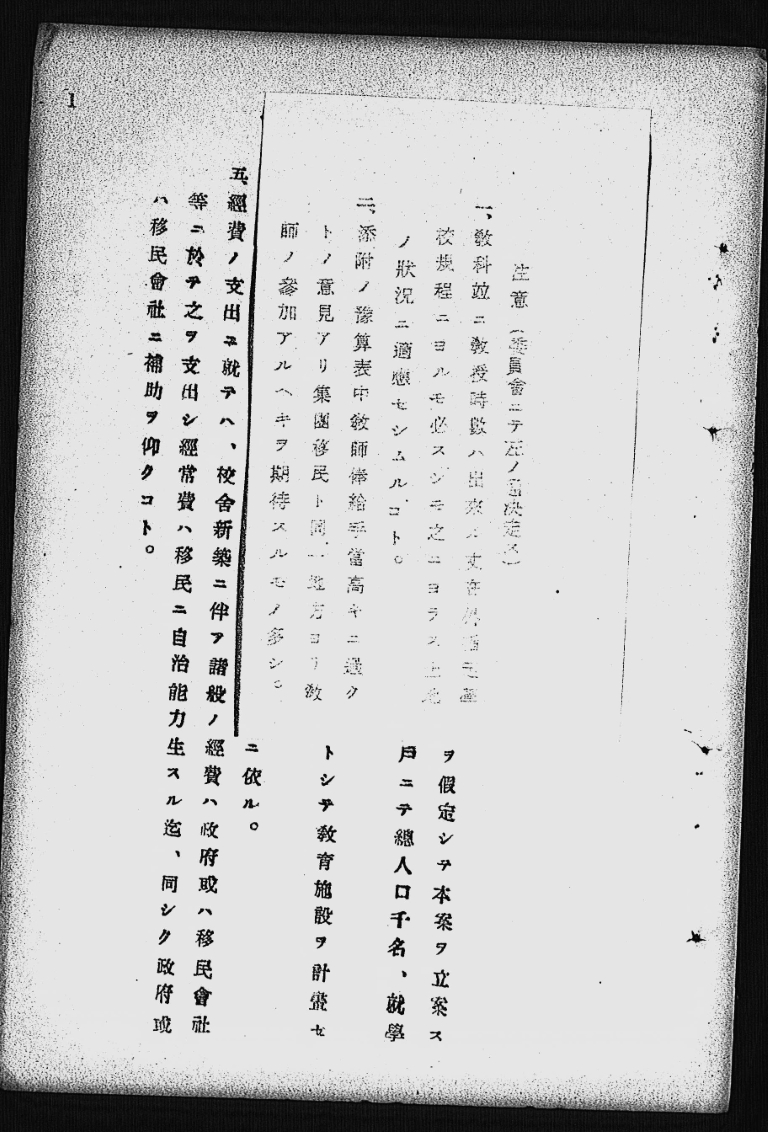 1
注意(委員會ニテ左ノ通決定ス)
一、敎科竝ニ敎授時數ハ出來ル丈在外指定學
校規程ニヨルモ必スシモ之ニヨラス土地
ノ狀況ニ適應セシムルコト。
二、添附ノ豫算表中敎師俸給手當高キニ過ク
トノ意見アリ集團移民ト同一地方ヨリ敎
師ノ參加アルヘキヲ期待スルモノ多シ。
ヲ假定シテ本案ヲ立案ス
戶ニテ總人口千名、就學
トシテ敎育施設ヲ計畫セ
ニ依ル。
五、經費ノ支出ニ就テハ、校舍新築ニ伴フ諸般ノ經費ハ政府或ハ移民會社
等ニ於テ之ヲ支出シ經常費ハ移民ニ自治能力生スル迄、同シク政府或
ハ移民會社ニ補助ヲ仰クコト。